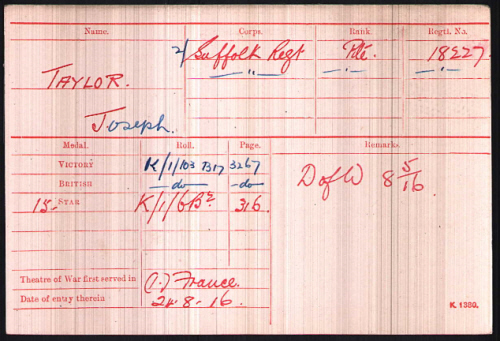 Name. Corps. Rank Regtl. No.
2/ Suffolk Regt Pte. 18227.
TAYLOR. — " — — " — — " —
Joseph.
Medal. Roll. Page. Remarks.
VICTORY K/1/103 B17 3267
BRITISH — do — — do D of W 8 5/16
15 - STAR K/1/6 B2 316.
Theatre of War first served in (1) France.
Date of entry therein 24.8.16.
K. 1380.